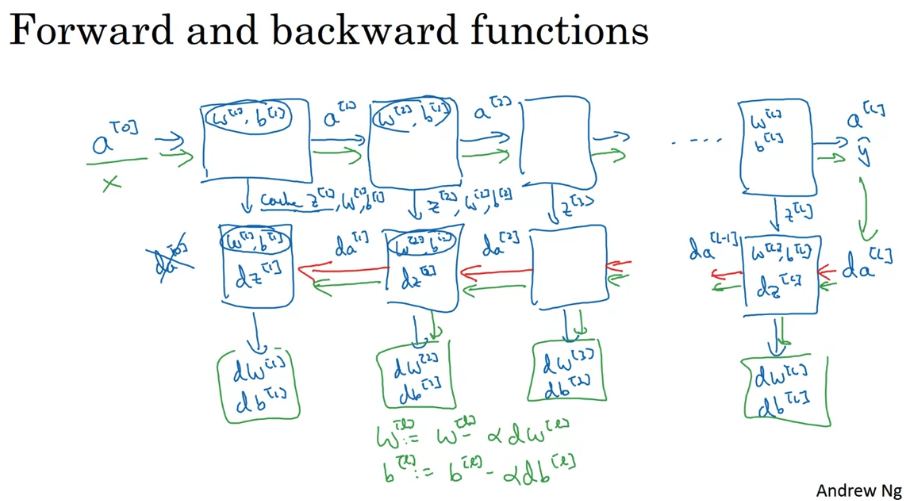 Forward and backward functions
a^[0] x
w^[1], b^[1]
a^[1]
w^[2], b^[2]
a^[2]
....
w^[L]
b^[L]
a^[L]
ŷ
cache z^[1], w^[1], b^[1]
z^[2], w^[2], b^[2]
z^[3]
z^[L]
da^[0]
w^[1], b^[1]
dz^[1]
da^[1]
w^[2], b^[2]
dz^[2]
da^[2]
da^[L-1]
w^[L], b^[L]
dz^[L]
da^[L]
dw^[1]
db^[1]
dw^[2]
db^[2]
dw^[3]
db^[3]
dw^[L]
db^[L]
w^[l] := w^[l] - αdw^[l]
b^[l] := b^[l] - αdb^[l]
Andrew Ng